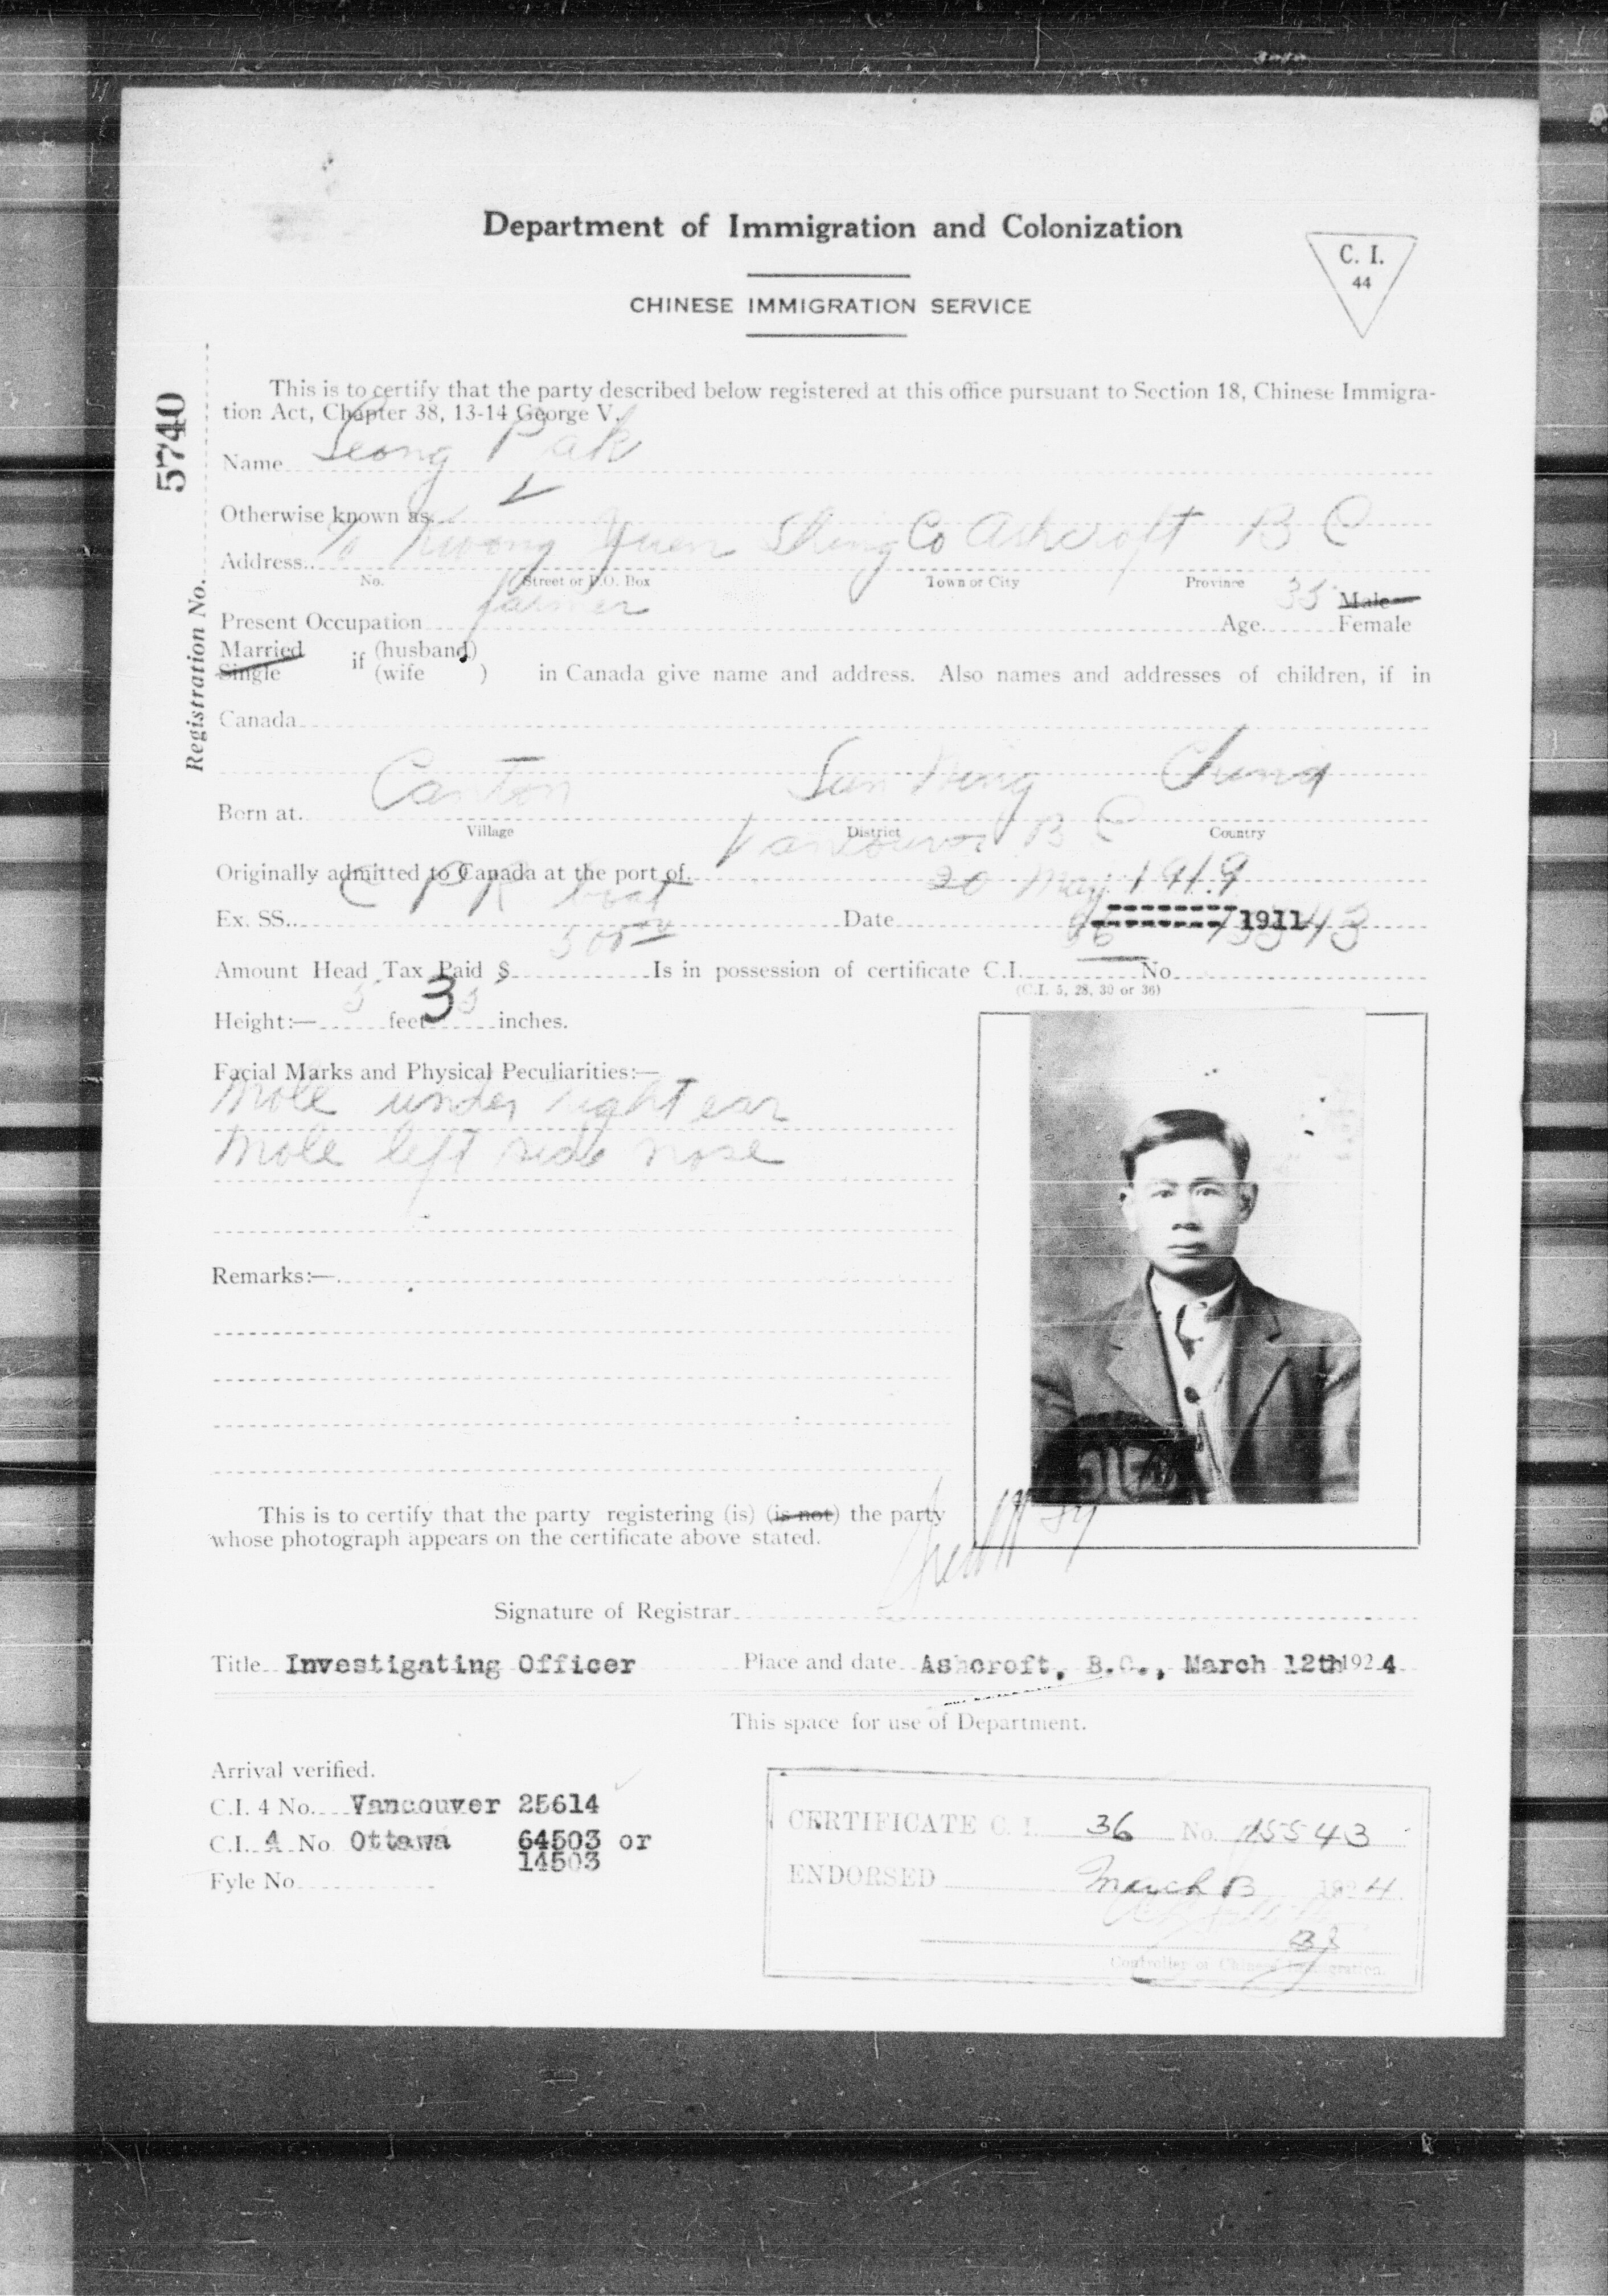 Department of Immigration and Colonization
C. I.
44
CHINESE IMMIGRATION SERVICE
This is to certify that the party described below registered at this office pursuant to Section 18, Chinese Immigra-
tion Act, Chapter 38, 13-14 George V.
Registration No. 5740
Name Seong Pak
Otherwise known as
Address c/o Kwong Yuen Shing Co Ashcroft B C
No. Street or P.O. Box Town or City Province
Present Occupation farmer Age 35 Male
Female
Married
Single
if (husband)
(wife )
in Canada give name and address. Also names and addresses of children, if in
Canada
Born at Canton Sun Ning China
Village District Country
Originally admitted to Canada at the port of Vancouver B C
Ex. SS. C P R boat Date 20 May 1919
1911
Amount Head Tax Paid $ 500.00 Is in possession of certificate C.I. 36 No. 15543
(C.I. 5, 28, 30 or 36)
Height:— 5 feet 3 inches.
Facial Marks and Physical Peculiarities:—
Mole under right ear
Mole left side nose
Remarks:—
This is to certify that the party registering (is) (is not) the party
whose photograph appears on the certificate above stated.
Signature of Registrar
Title Investigating Officer Place and date Ashcroft, B.C., March 12th 1924
This space for use of Department.
Arrival verified.
C.I. 4 No. Vancouver 25614
C.I. A No Ottawa 64503 or
14503
Fyle No
CERTIFICATE C. I. 36 No. 15543
ENDORSED March 13 1924
Controller of Chinese Immigration.